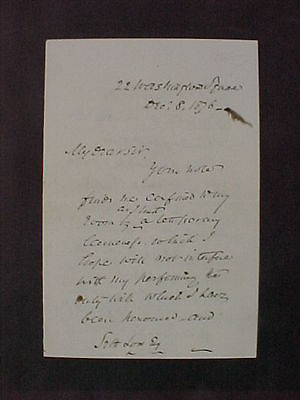 22 Washington Place
Dec. 8. 1876
My dear sir,
Your note
finds me confined to my
room by a temporary
lameness which I
hope will not interfere
with my performing the
duty with which I have
been honored and